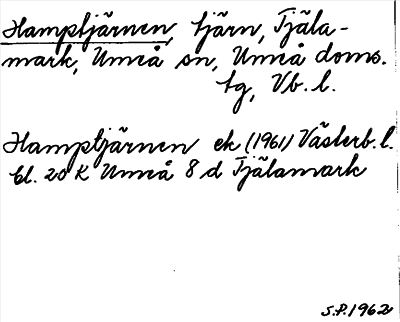 Hamptjärnen, tjärn, Tjäla-
mark, Umeå sn, Umeå doms.
tg, Vb. l.
Hamptjärnen ek (1961) Västerb. l.
bl. 20 K Umeå 8 d Tjälamark
S.P. 1962